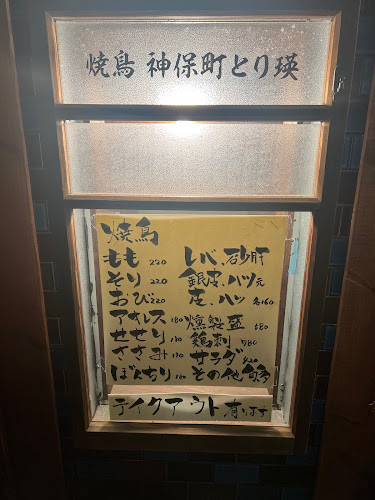 焼鳥 神保町とり瑛
焼鳥
もも 220
そり 220
おび 220
アキレス 180
せせり 180
ささみ 180
ぼんちり 180
レバ、砂肝
銀皮、ハツ元
皮、ハツ 各160
燻製盛 580
鶏刺 780
サラダ
その他色々
テイクアウト有ります